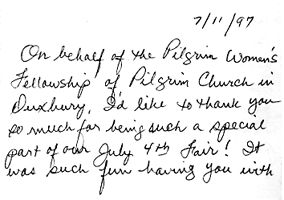 7/11/97
On behalf of the Pilgrim Women's
Fellowship of Pilgrim Church in
Duxbury, I'd like to thank you
so much for being such a special
part of our July 4th Fair! It
was such fun having you with